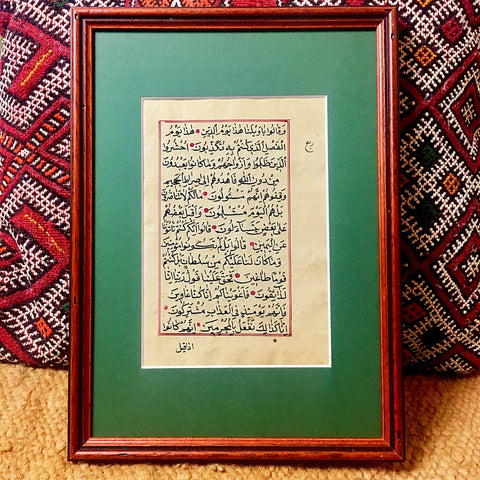 وَقَالُوا يَاوَيْلَنَا هٰذَا يَوْمُ الدِّينِ هٰذَا يَوْمُ
الْفَصْلِ الَّذِي كُنْتُمْ بِهِ تُكَذِّبُونَ احْشُرُوا
الَّذِينَ ظَلَمُوا وَأَزْوَاجَهُمْ وَمَا كَانُوا يَعْبُدُونَ
مِنْ دُونِ اللّٰهِ فَاهْدُوهُمْ إِلَى صِرَاطِ الْجَحِيمِ
وَقِفُوهُمْ إِنَّهُمْ مَسْئُولُونَ مَالَكُمْ لَا تَنَاصَرُونَ
بَلْ هُمُ الْيَوْمَ مُسْتَسْلِمُونَ وَأَقْبَلَ بَعْضُهُمْ
عَلَى بَعْضٍ يَتَسَاءَلُونَ قَالُوا إِنَّكُمْ كُنْتُمْ تَأْتُونَنَا
عَنِ الْيَمِينِ قَالُوا بَلْ لَمْ تَكُونُوا مُؤْمِنِينَ
وَمَا كَانَ لَنَا عَلَيْكُمْ مِنْ سُلْطَانٍ بَلْ كُنْتُمْ
قَوْمًا طَاغِينَ فَحَقَّ عَلَيْنَا قَوْلُ رَبِّنَا إِنَّا
لَذَائِقُونَ فَأَغْوَيْنَاكُمْ إِنَّا كُنَّا غَاوِينَ
فَإِنَّهُمْ يَوْمَئِذٍ فِي الْعَذَابِ مُشْتَرِكُونَ
إِنَّا كَذٰلِكَ نَفْعَلُ بِالْمُجْرِمِينَ إِنَّهُمْ كَانُوا
اذا قيل